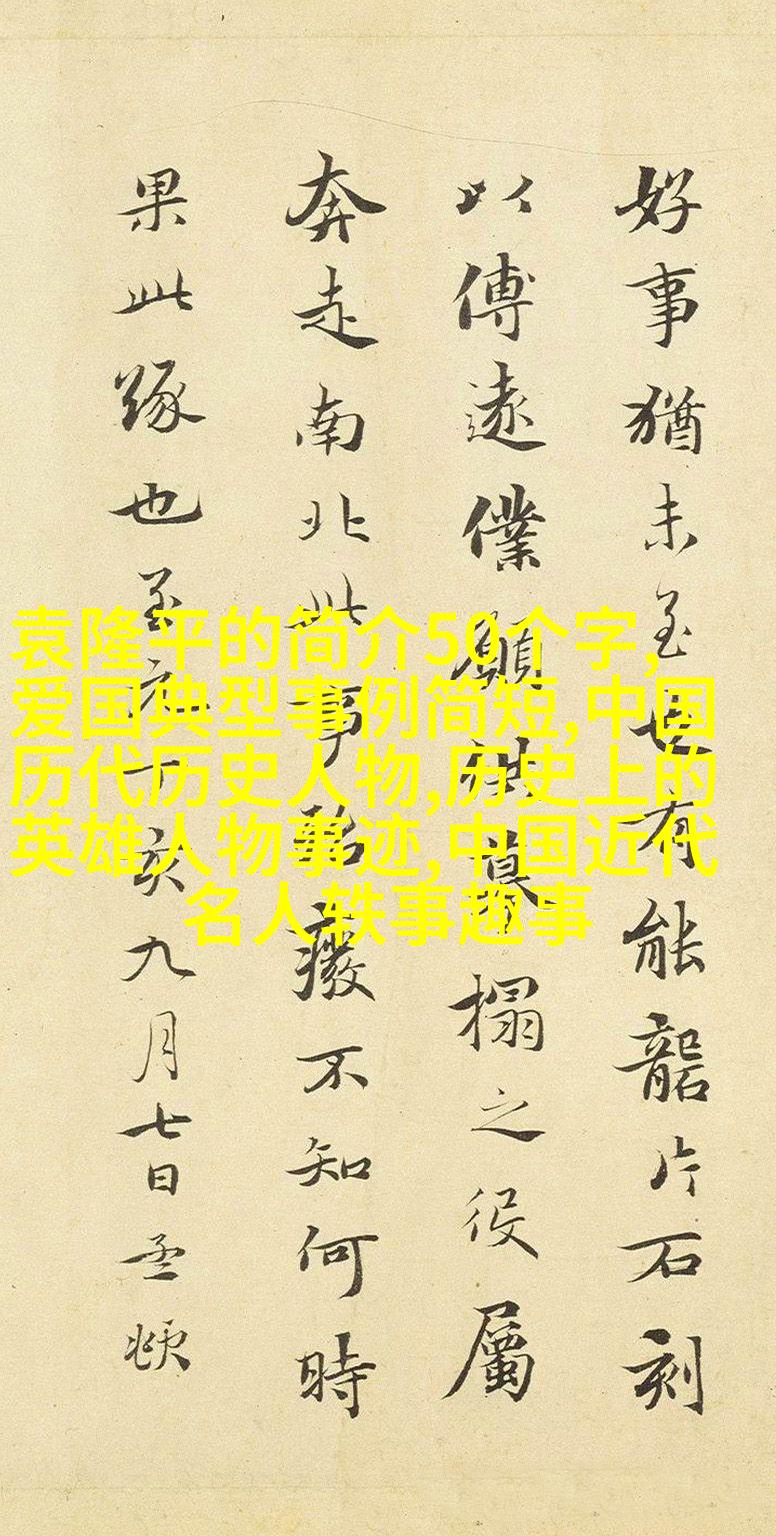 好事猶未至世有能龍片石刻
以傳遠僕願供募搨之役屬
奔走南北此事殆癈不知何時
果此緣也至元丁亥九月七日孟頫
袁隆平的简介50个字,
爱国典型事例简短,中国
历代历史人物,历史上的
英雄人物事迹,中国近代
名人轶事趣事